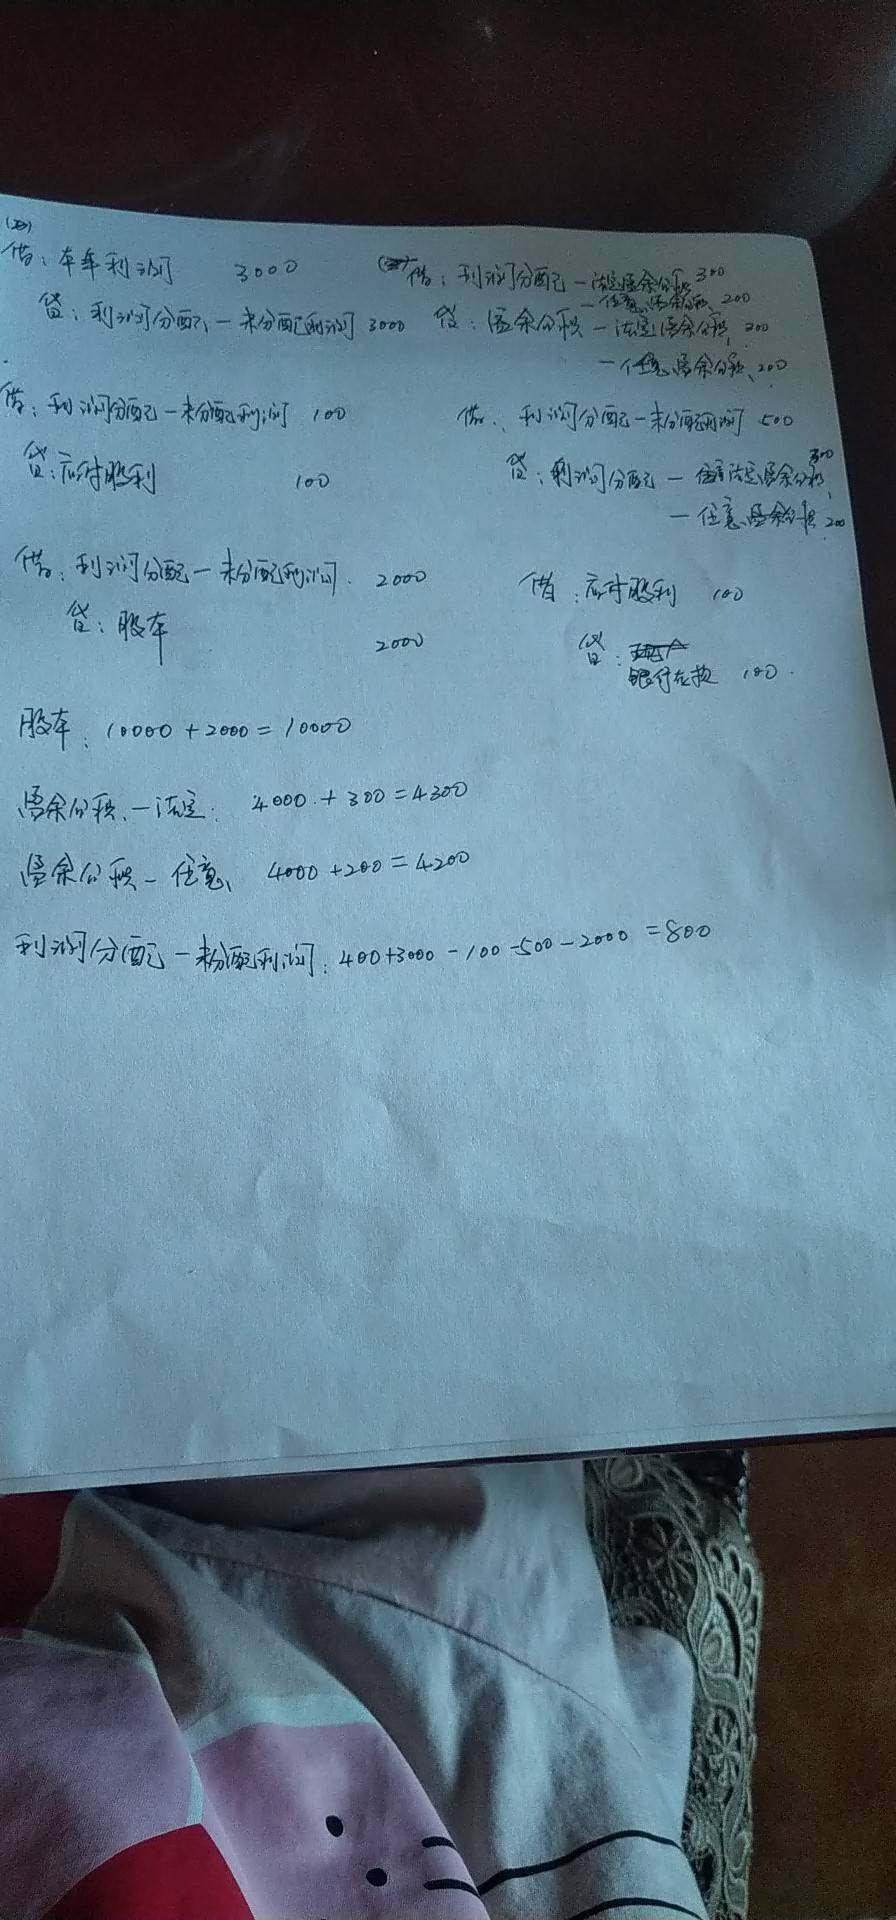 借：本年利润 3000
贷：利润分配—未分配利润 3000
借：利润分配—未分配利润 100
贷：应付股利 100
借：利润分配—未分配利润 2000
贷：股本 2000
借：利润分配—法定盈余公积 300
—任意盈余公积 200
贷：盈余公积—法定盈余公积 300
—任意盈余公积 200
借：利润分配—未分配利润 500
贷：利润分配—法定盈余公积 300
—任意盈余公积 200
借：应付股利 100
贷：
银行存款 100
股本：10000+2000=10000
盈余公积—法定：4000+300=4300
盈余公积—任意：4000+200=4200
利润分配—未分配利润：400+3000-100-500-2000=800